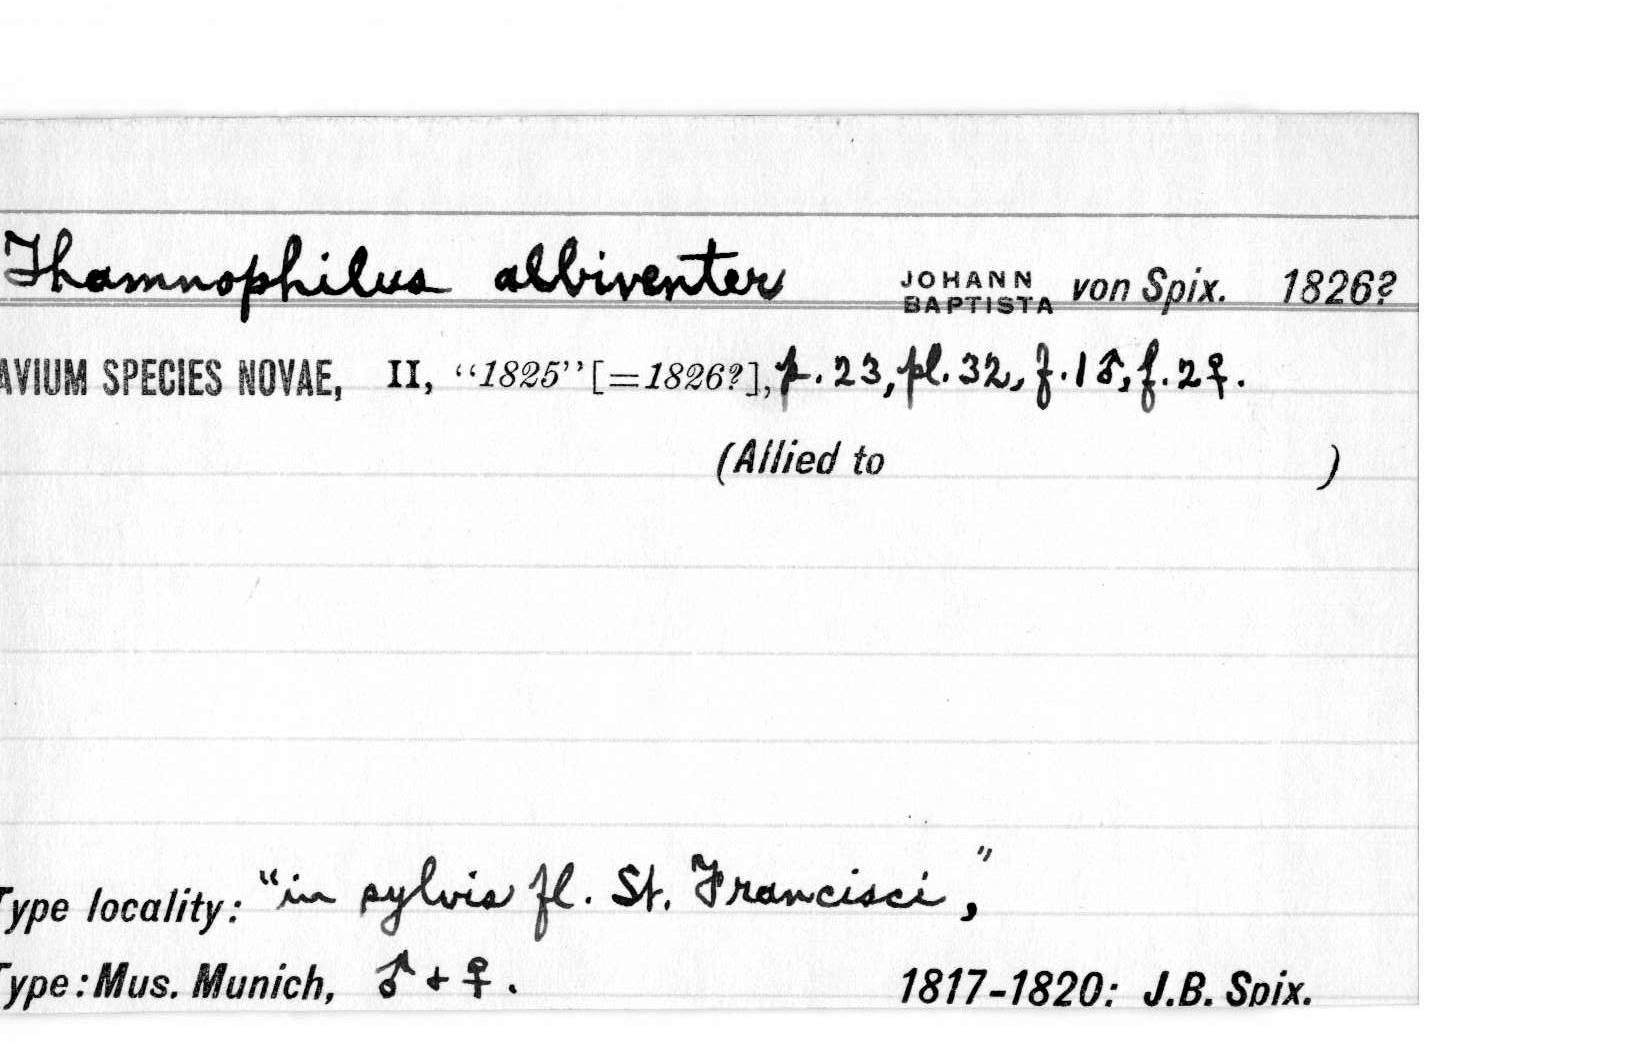 Thamnophilus albiventer JOHANN BAPTISTA von Spix. 1826?
AVIUM SPECIES NOVAE, II, “1825” [=1826?], p. 23, pl. 32, f. 1 ♂, f. 2 ♀.
(Allied to )
Type locality: “in sylvis fl. St. Francisci,”
Type: Mus. Munich, ♂ + ♀. 1817-1820: J.B. Spix.